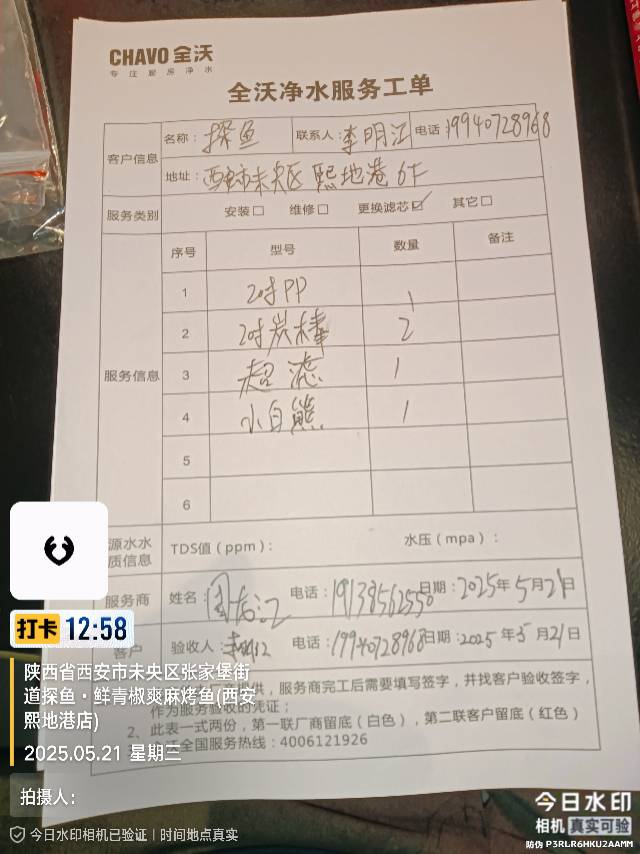 CHAVO 全沃
专注厨房净水
全沃净水服务工单
客户信息 名称: 探鱼 联系人: 李明江 电话: 19940728968
地址: 西安市未央区 熙地港 6F
服务类别 安装□ 维修□ 更换滤芯☑ 其它□
服务信息 序号 型号 数量 备注
1 20寸PP 1
2 20寸炭棒 2
3 超滤 1
4 小白熊 1
5
6
源水水质信息 TDS值（ppm）: 水压（mpa）:
服务商 姓名: 电话: 19138562550 日期: 2025年5月21日
客户 验收人: 李明江 电话: 19940728968 日期: 2025年5月21日
供，服务商完工后需要填写签字，并找客户验收签字，
作为服务验收的凭证；
2、此表一式两份，第一联厂商留底（白色），第二联客户留底（红色）
沃全国服务热线: 4006121926
打卡 12:58
陕西省西安市未央区张家堡街
道探鱼·鲜青椒爽麻烤鱼(西安
熙地港店)
2025.05.21 星期三
拍摄人:
今日水印相机已验证 | 时间地点真实
今日水印
相机 真实可验
防伪 P3RLR6HKU2AAMM